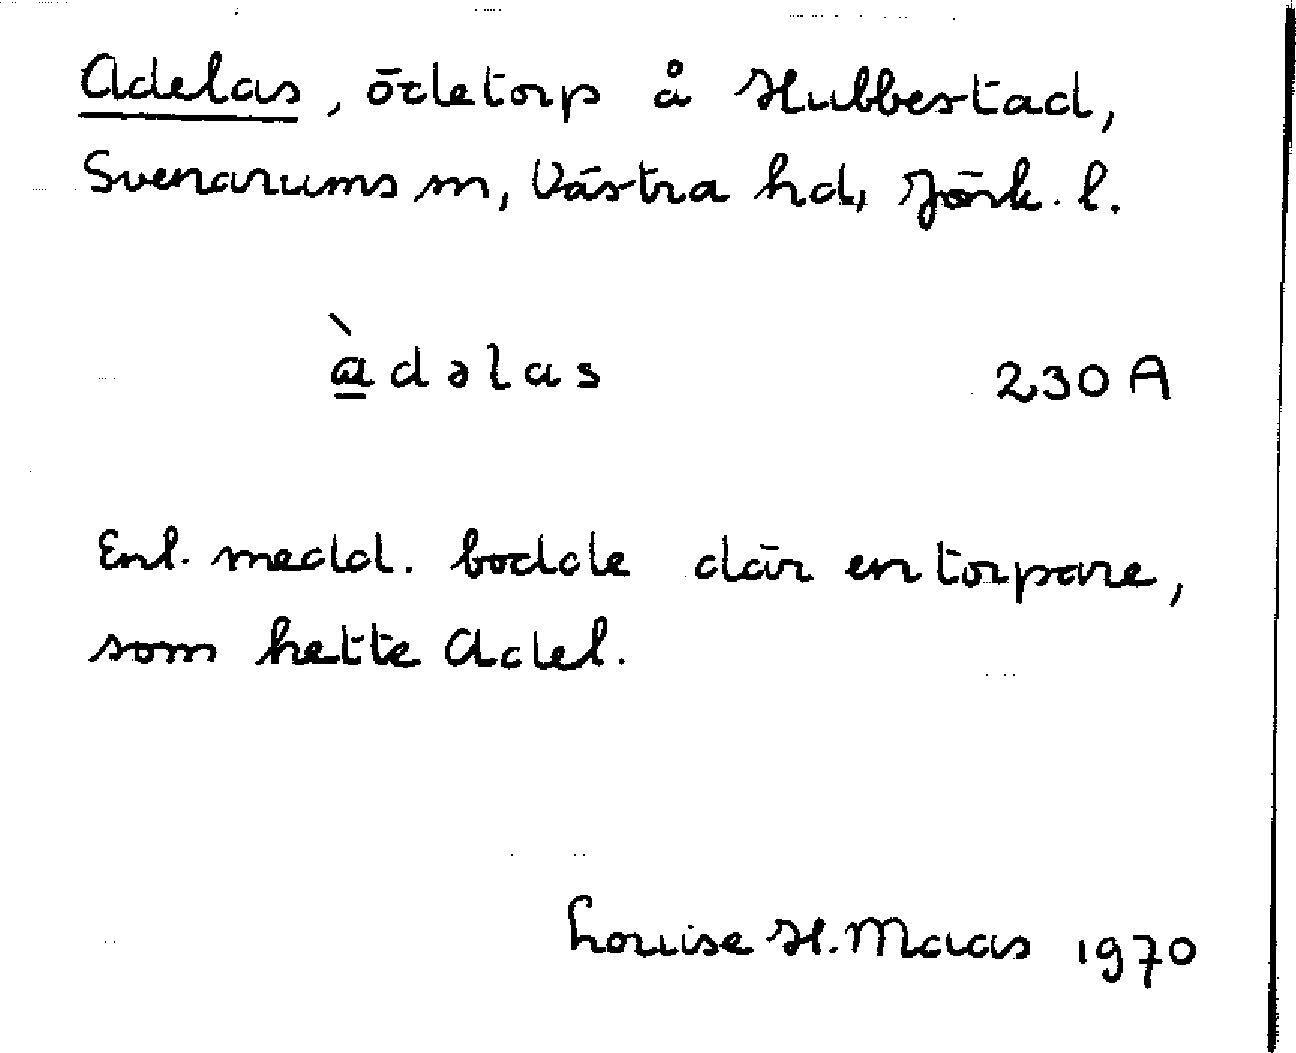 Adelas, ödetorp å Hubbestad,
Svenarums sn, Västra hd, Jönk. l.
àdəlas 230 A
Enl. medd. bodde där en torpare,
som hette Adel.
Louise H. Maas 1970